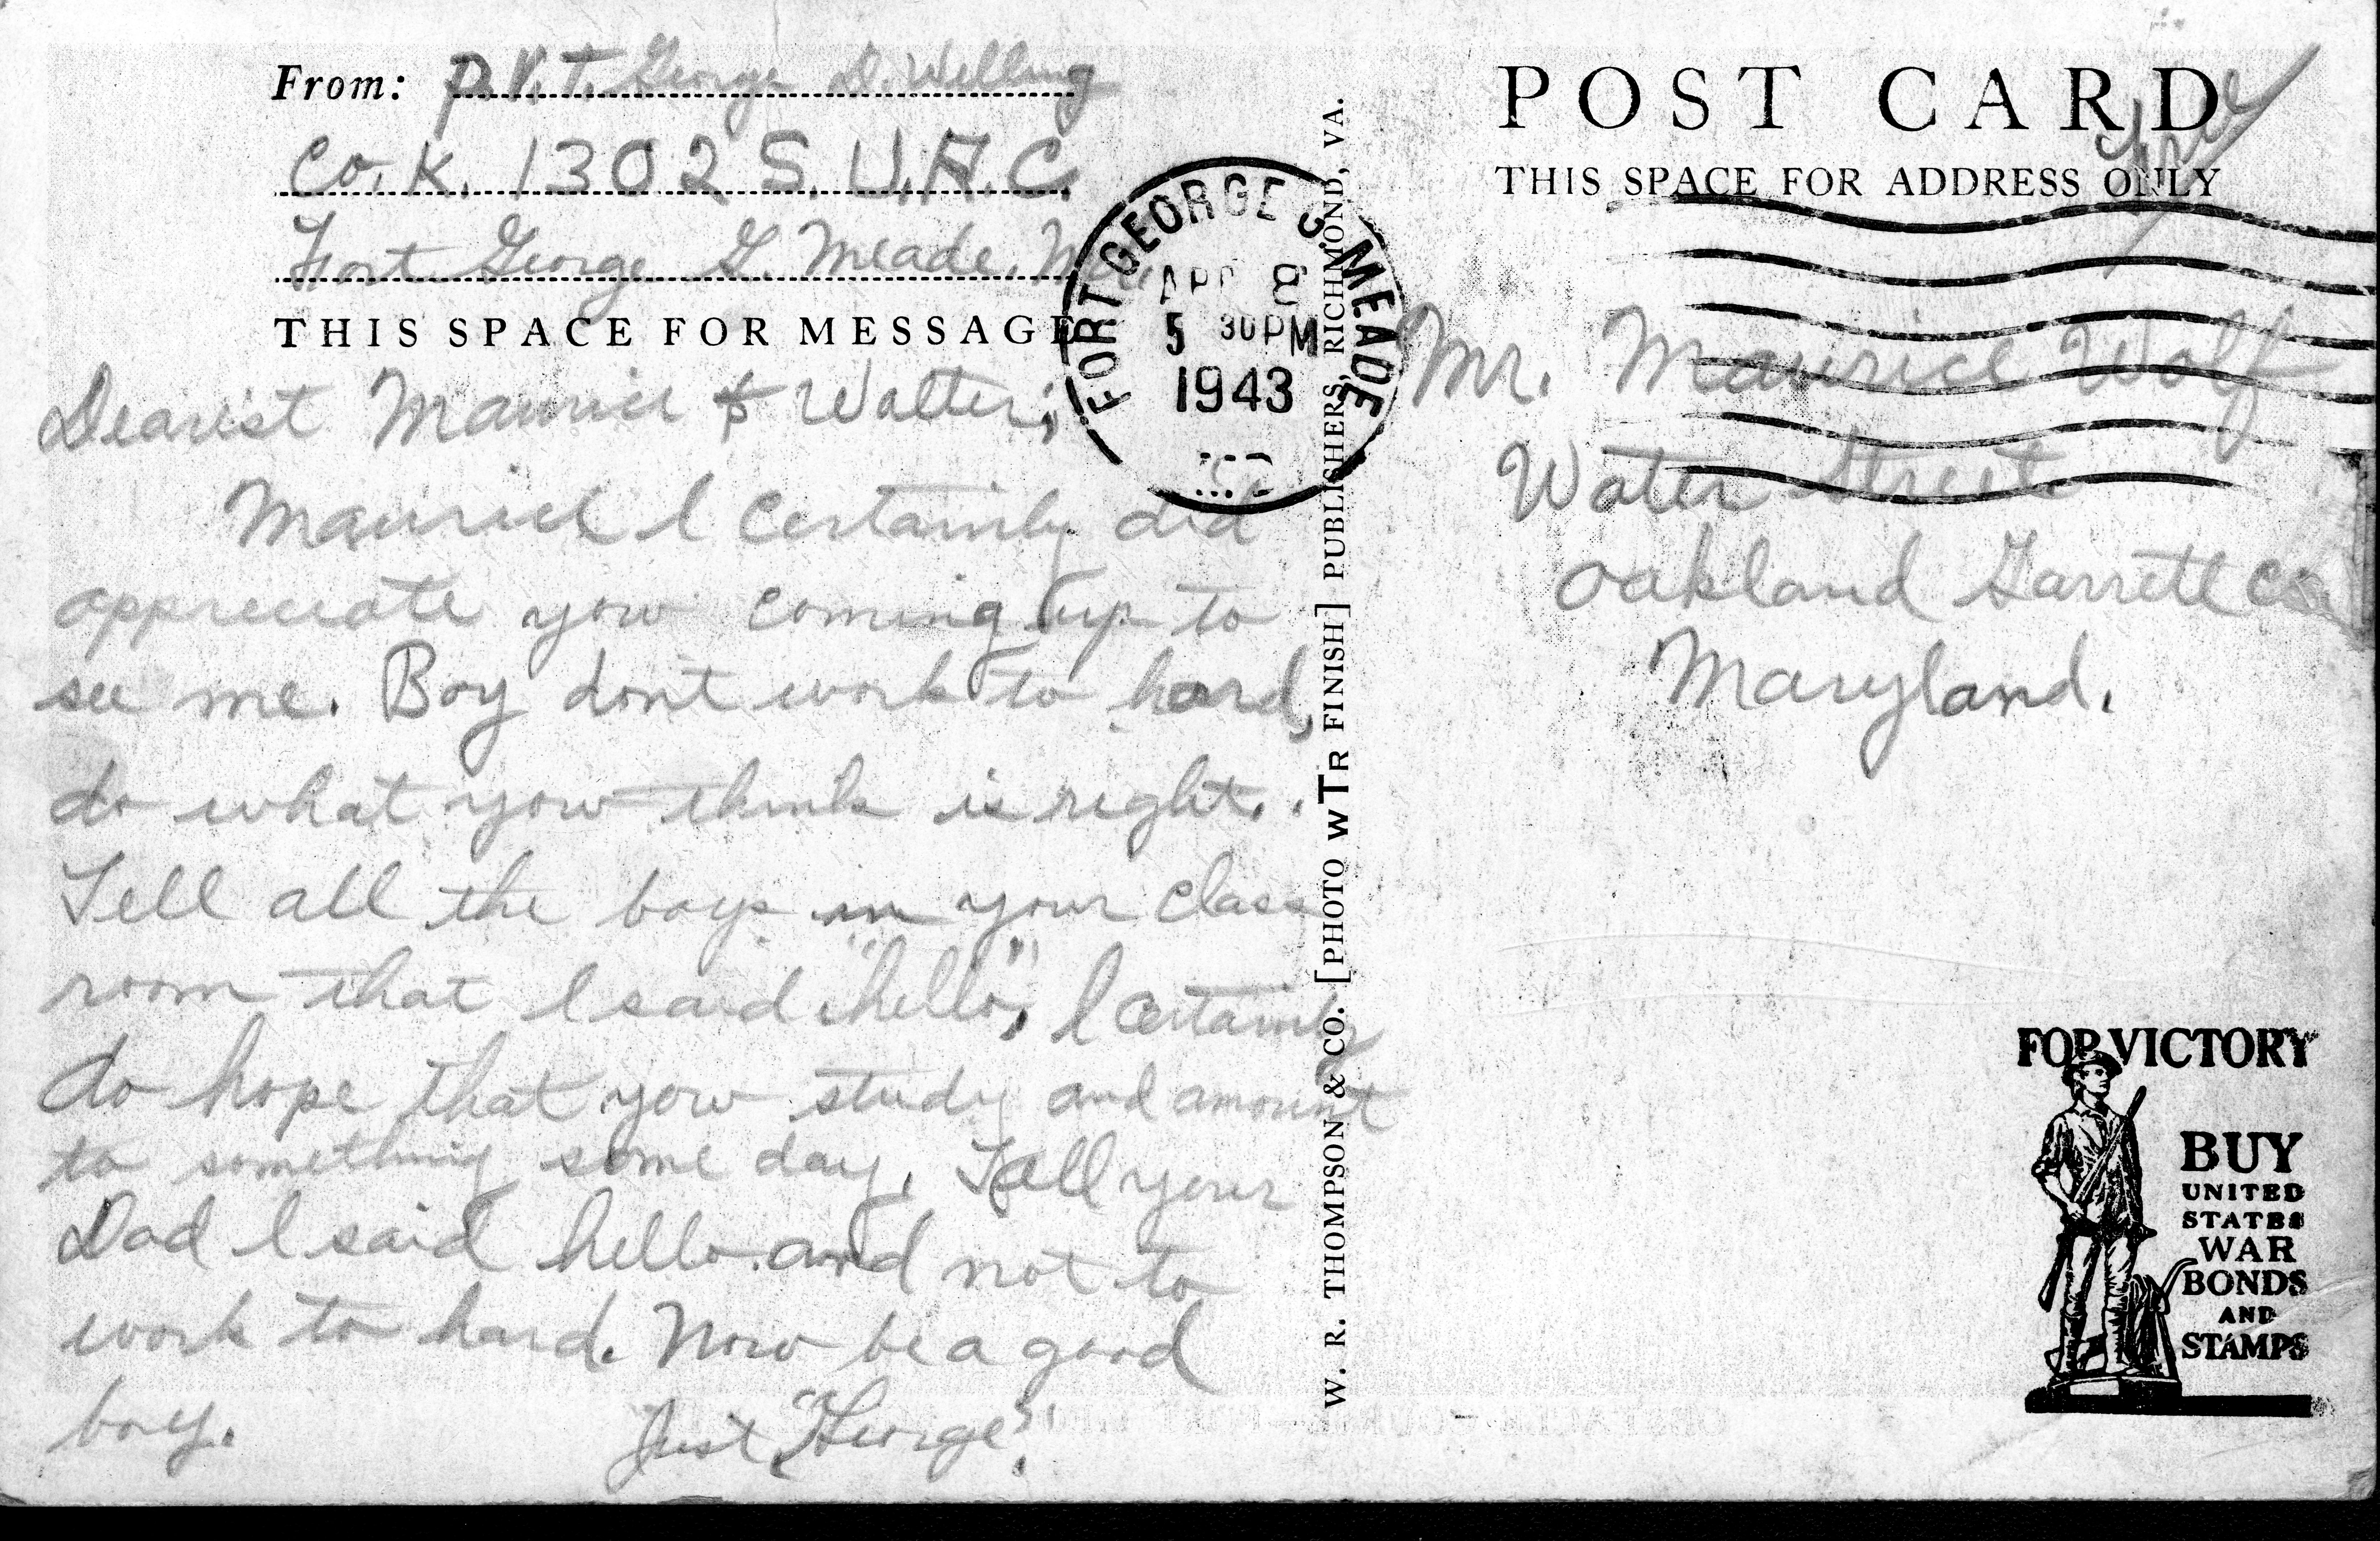 From: P.V.T. George D. Welling
Co. K. 1302 S.U.A.C.
Fort George G. Meade, Md.
THIS SPACE FOR MESSAGE
Dearest Maurice & Walter;
Maurice I certainly did
appreciate you coming up to
see me. Boy dont work to hard,
do what you think is right..
Tell all the boys in your class
room that I said "hello", I certainly
do hope that you study and amount
to something some day. Tell your
Dad I said hello and not to
work to hard. Now be a good
boy. Just, "George".
FORT GEORGE G. MEADE
APR 8
5 30 PM
1943
W. R. THOMPSON & CO. [PHOTO WTR FINISH] PUBLISHERS, RICHMOND, VA.
POST CARD
Free
THIS SPACE FOR ADDRESS ONLY
Mr. Maurice Wolf
Water Street
Oakland Garrett Co.
Maryland.
FOR VICTORY
BUY
UNITED
STATES
WAR
BONDS
AND
STAMPS